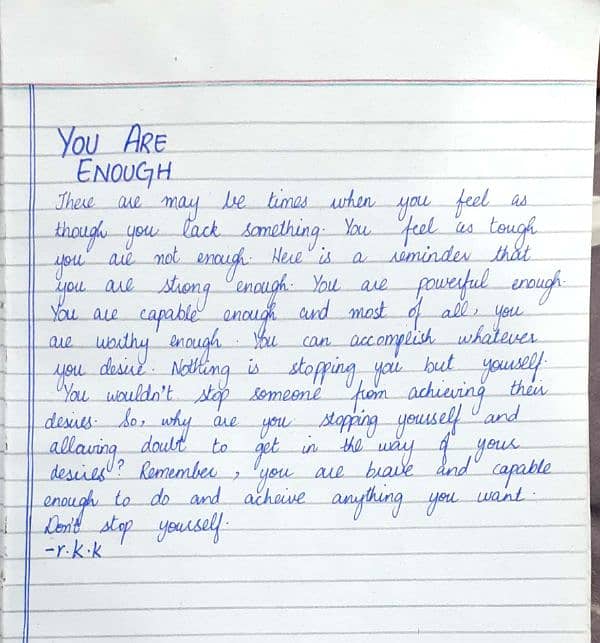 YOU ARE
ENOUGH
There are may be times when you feel as
though you lack something. You feel as tough
you are not enough. Here is a reminder that
you are strong enough. You are powerful enough.
You are capable enough and most of all, you
are worthy enough. You can accomplish whatever
you desire. Nothing is stopping you but yourself.
You wouldn't stop someone from achieving their
desires. So, why are you stopping yourself and
allowing doubt to get in the way of your
desires? Remember, you are brave and capable
enough to do and acheive anything you want.
Don't stop yourself.
-r.k.k